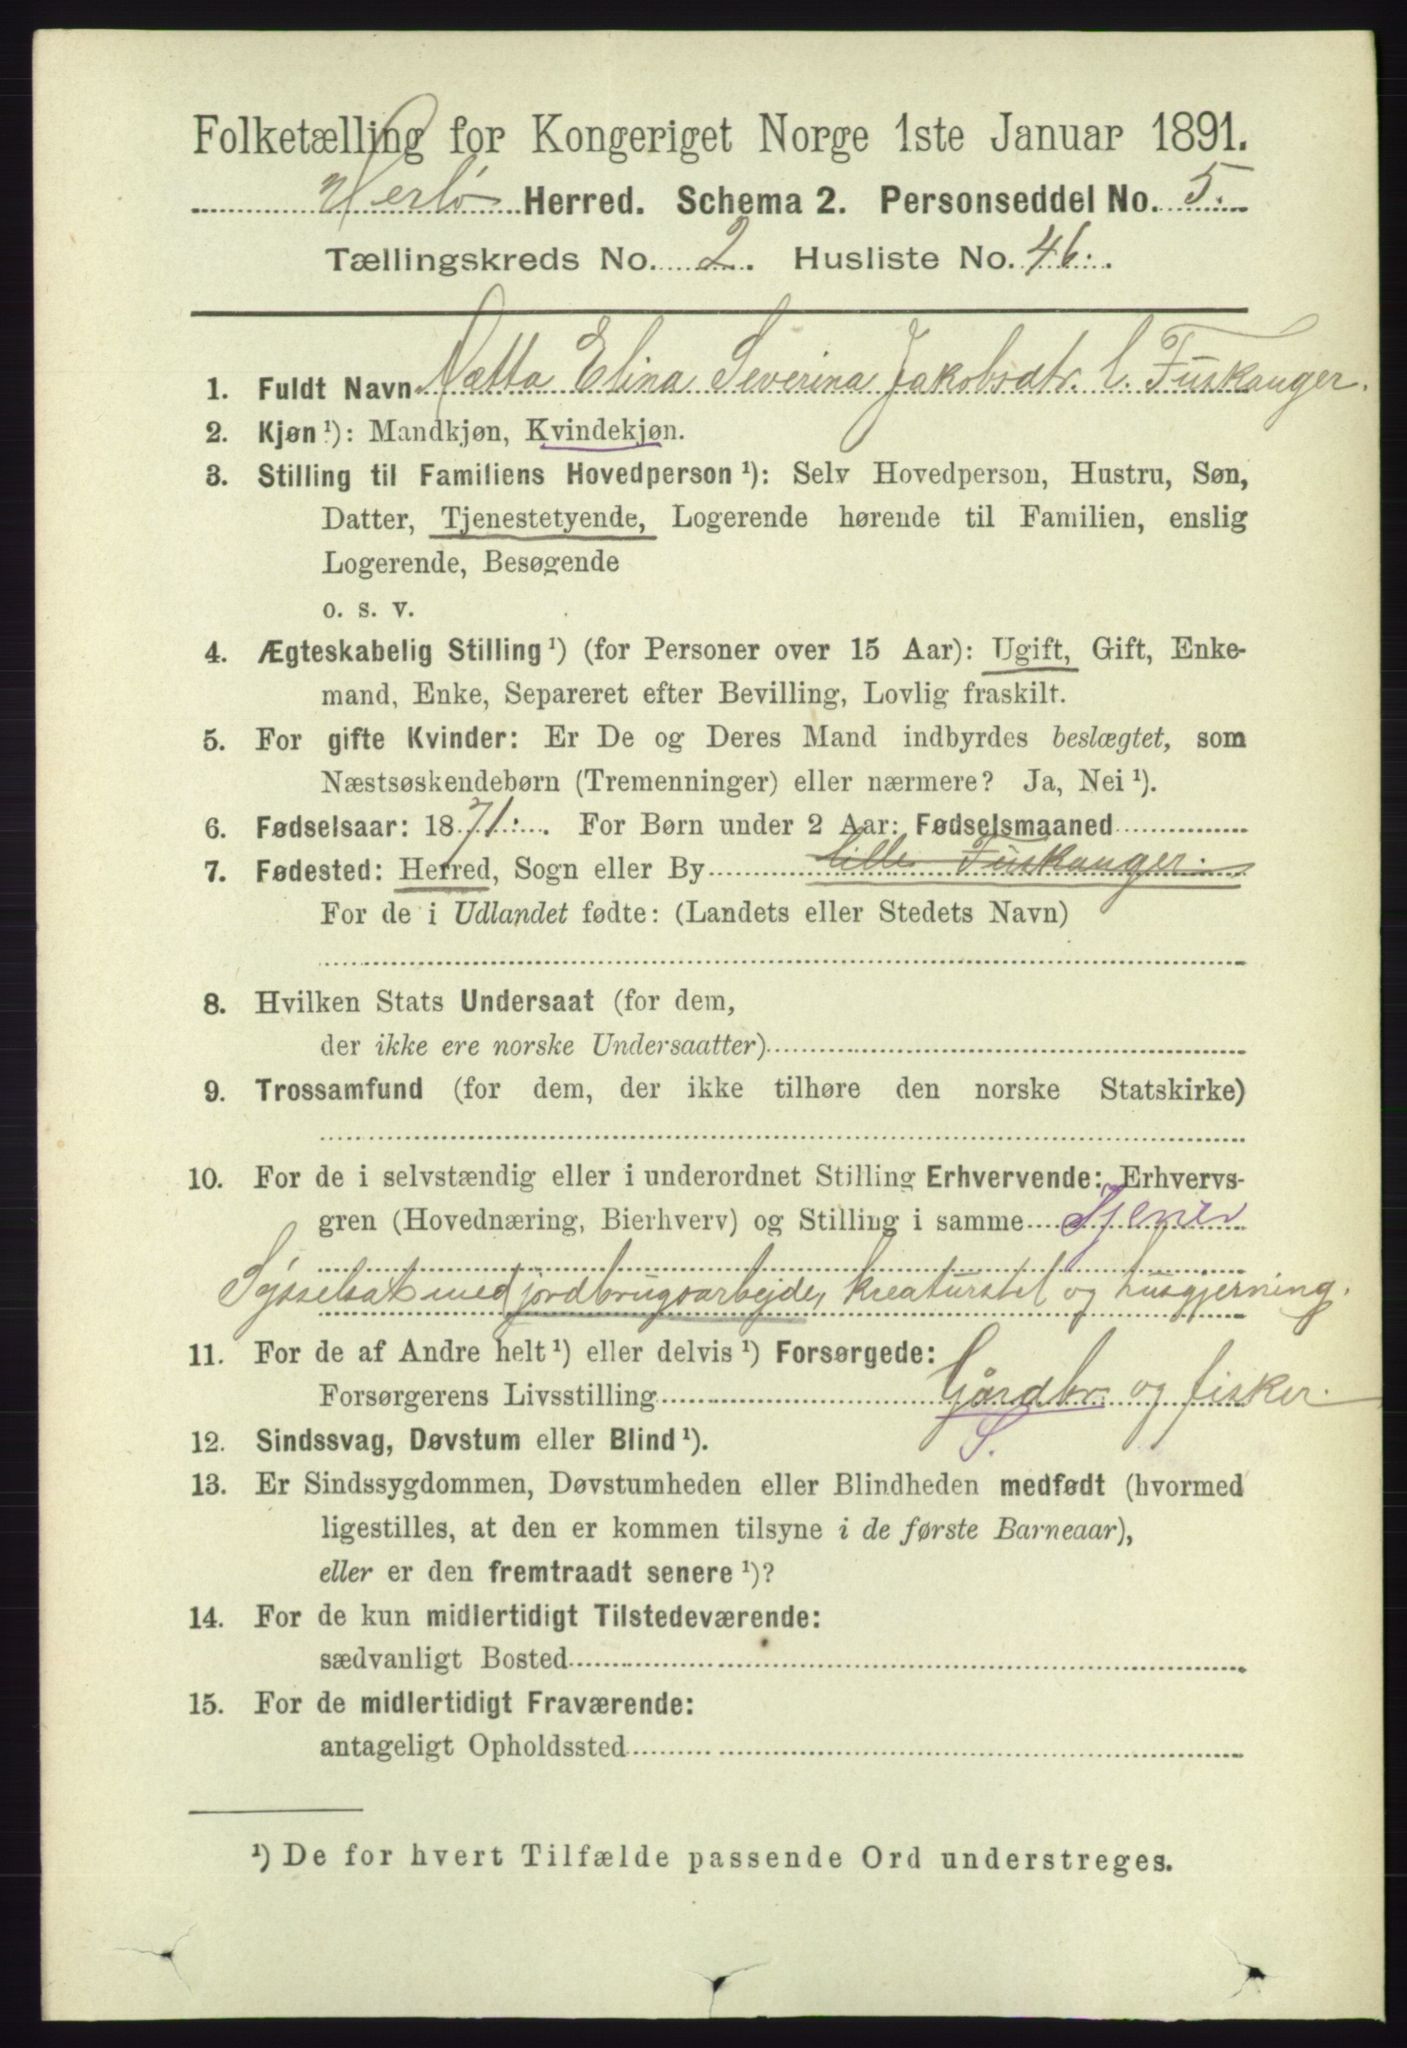 Folketælling for Kongeriget Norge 1ste Januar 1891.
Herlø Herred. Schema 2. Personseddel No. 5.
Tællingskreds No. 2. Husliste No. 46.
1. Fuldt Navn Natta Elina Severina Jakobsdtr. l. Fuskanger.
2. Kjøn ¹): Mandkjøn, Kvindekjøn.
3. Stilling til Familiens Hovedperson ¹): Selv Hovedperson, Hustru, Søn,
Datter, Tjenestetyende, Logerende hørende til Familien, enslig
Logerende, Besøgende
o. s. v.
4. Ægteskabelig Stilling ¹) (for Personer over 15 Aar): Ugift, Gift, Enke-
mand, Enke, Separeret efter Bevilling, Lovlig fraskilt.
5. For gifte Kvinder: Er De og Deres Mand indbyrdes beslægtet, som
Næstsøskendebørn (Tremenninger) eller nærmere? Ja, Nei ¹).
6. Fødselsaar: 1871. For Børn under 2 Aar: Fødselsmaaned
7. Fødested: Herred, Sogn eller By lille Fuskanger.
For de i Udlandet fødte: (Landets eller Stedets Navn)
8. Hvilken Stats Undersaat (for dem,
der ikke ere norske Undersaatter)
9. Trossamfund (for dem, der ikke tilhøre den norske Statskirke)
10. For de i selvstændig eller i underordnet Stilling Erhvervende: Erhvervs-
gren (Hovednæring, Bierhverv) og Stilling i samme Tjener
Sysselsat med jordbrugsarbejde, kreaturstel og husgjerning.
11. For de af Andre helt ¹) eller delvis ¹) Forsørgede:
Forsørgerens Livsstilling Gårdbr. og fisker.
S.
12. Sindssvag, Døvstum eller Blind ¹).
13. Er Sindssygdommen, Døvstumheden eller Blindheden medfødt (hvormed
ligestilles, at den er kommen tilsyne i de første Barneaar),
eller er den fremtraadt senere ¹)?
14. For de kun midlertidigt Tilstedeværende:
sædvanligt Bosted
15. For de midlertidigt Fraværende:
antageligt Opholdssted
¹) De for hvert Tilfælde passende Ord understreges.